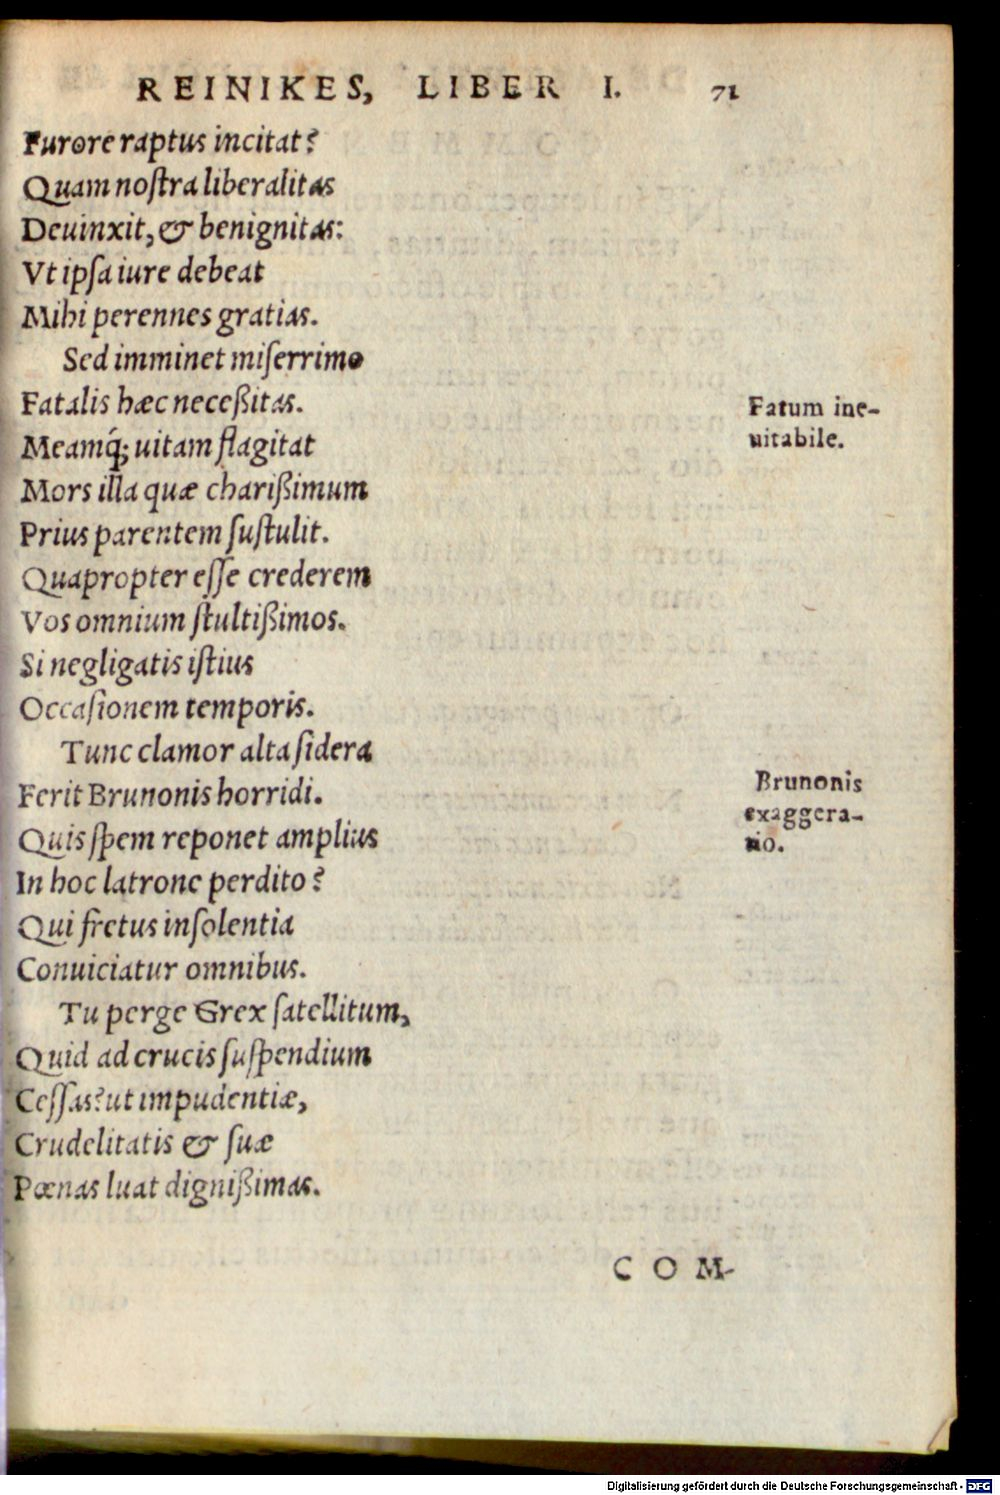 REINIKES, LIBER I. 71
Furore raptus incitat?
Quam noſtra liberalitas
Deuinxit, & benignitas:
Vt ipſa iure debeat
Mihi perennes gratias.
Sed imminet miſerrimo
Fatalis hæc neceßitas.
Fatum ine-
uitabile.
Meamq́; uitam flagitat
Mors illa quæ charißimum
Prius parentem ſuſtulit.
Quapropter eſſe crederem
Vos omnium ſtultißimos.
Si negligatis iſtius
Occaſionem temporis.
Tunc clamor alta ſidera
Ferit Brunonis horridi.
Brunonis
exaggera-
tio.
Quis ſpem reponet amplius
In hoc latrone perdito?
Qui fretus inſolentia
Conuiciatur omnibus.
Tu perge Grex ſatellitum,
Quid ad crucis ſuſpendium
Ceſſas? ut impudentiæ,
Crudelitatis & ſuæ
Pœnas luat dignißimas.
COM-
Digitalisierung gefördert durch die Deutsche Forschungsgemeinschaft - DFG